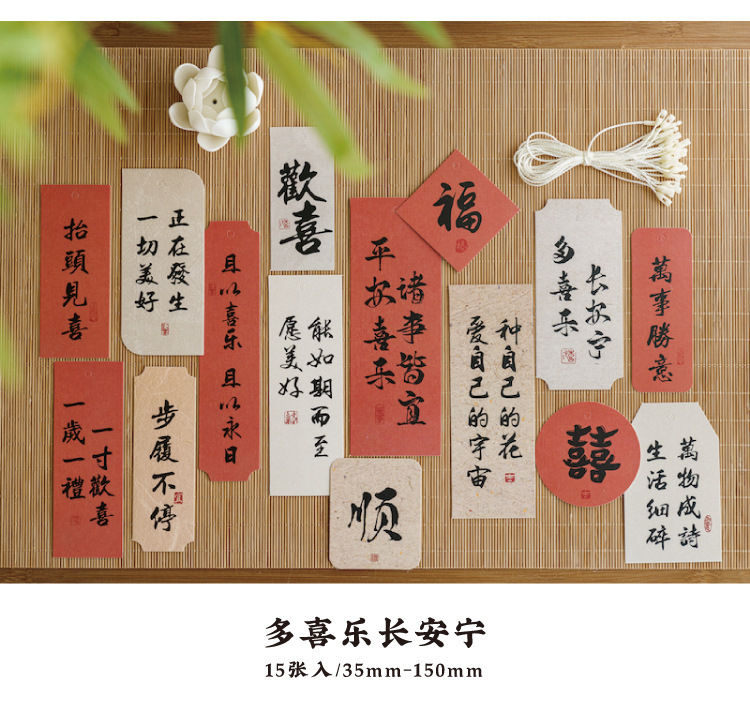 抬頭見喜
正在發生
一切美好
且以喜乐 且以永日
歡喜
諸事皆宜
平安喜乐
福
长安宁
多喜乐
萬事勝意
一寸歡喜
一歲一禮
步履不停
能如期而至
愿美好
种自己的花
爱自己的宇宙
顺
囍
萬物成詩
生活细碎
多喜乐长安宁
15张入/35mm-150mm